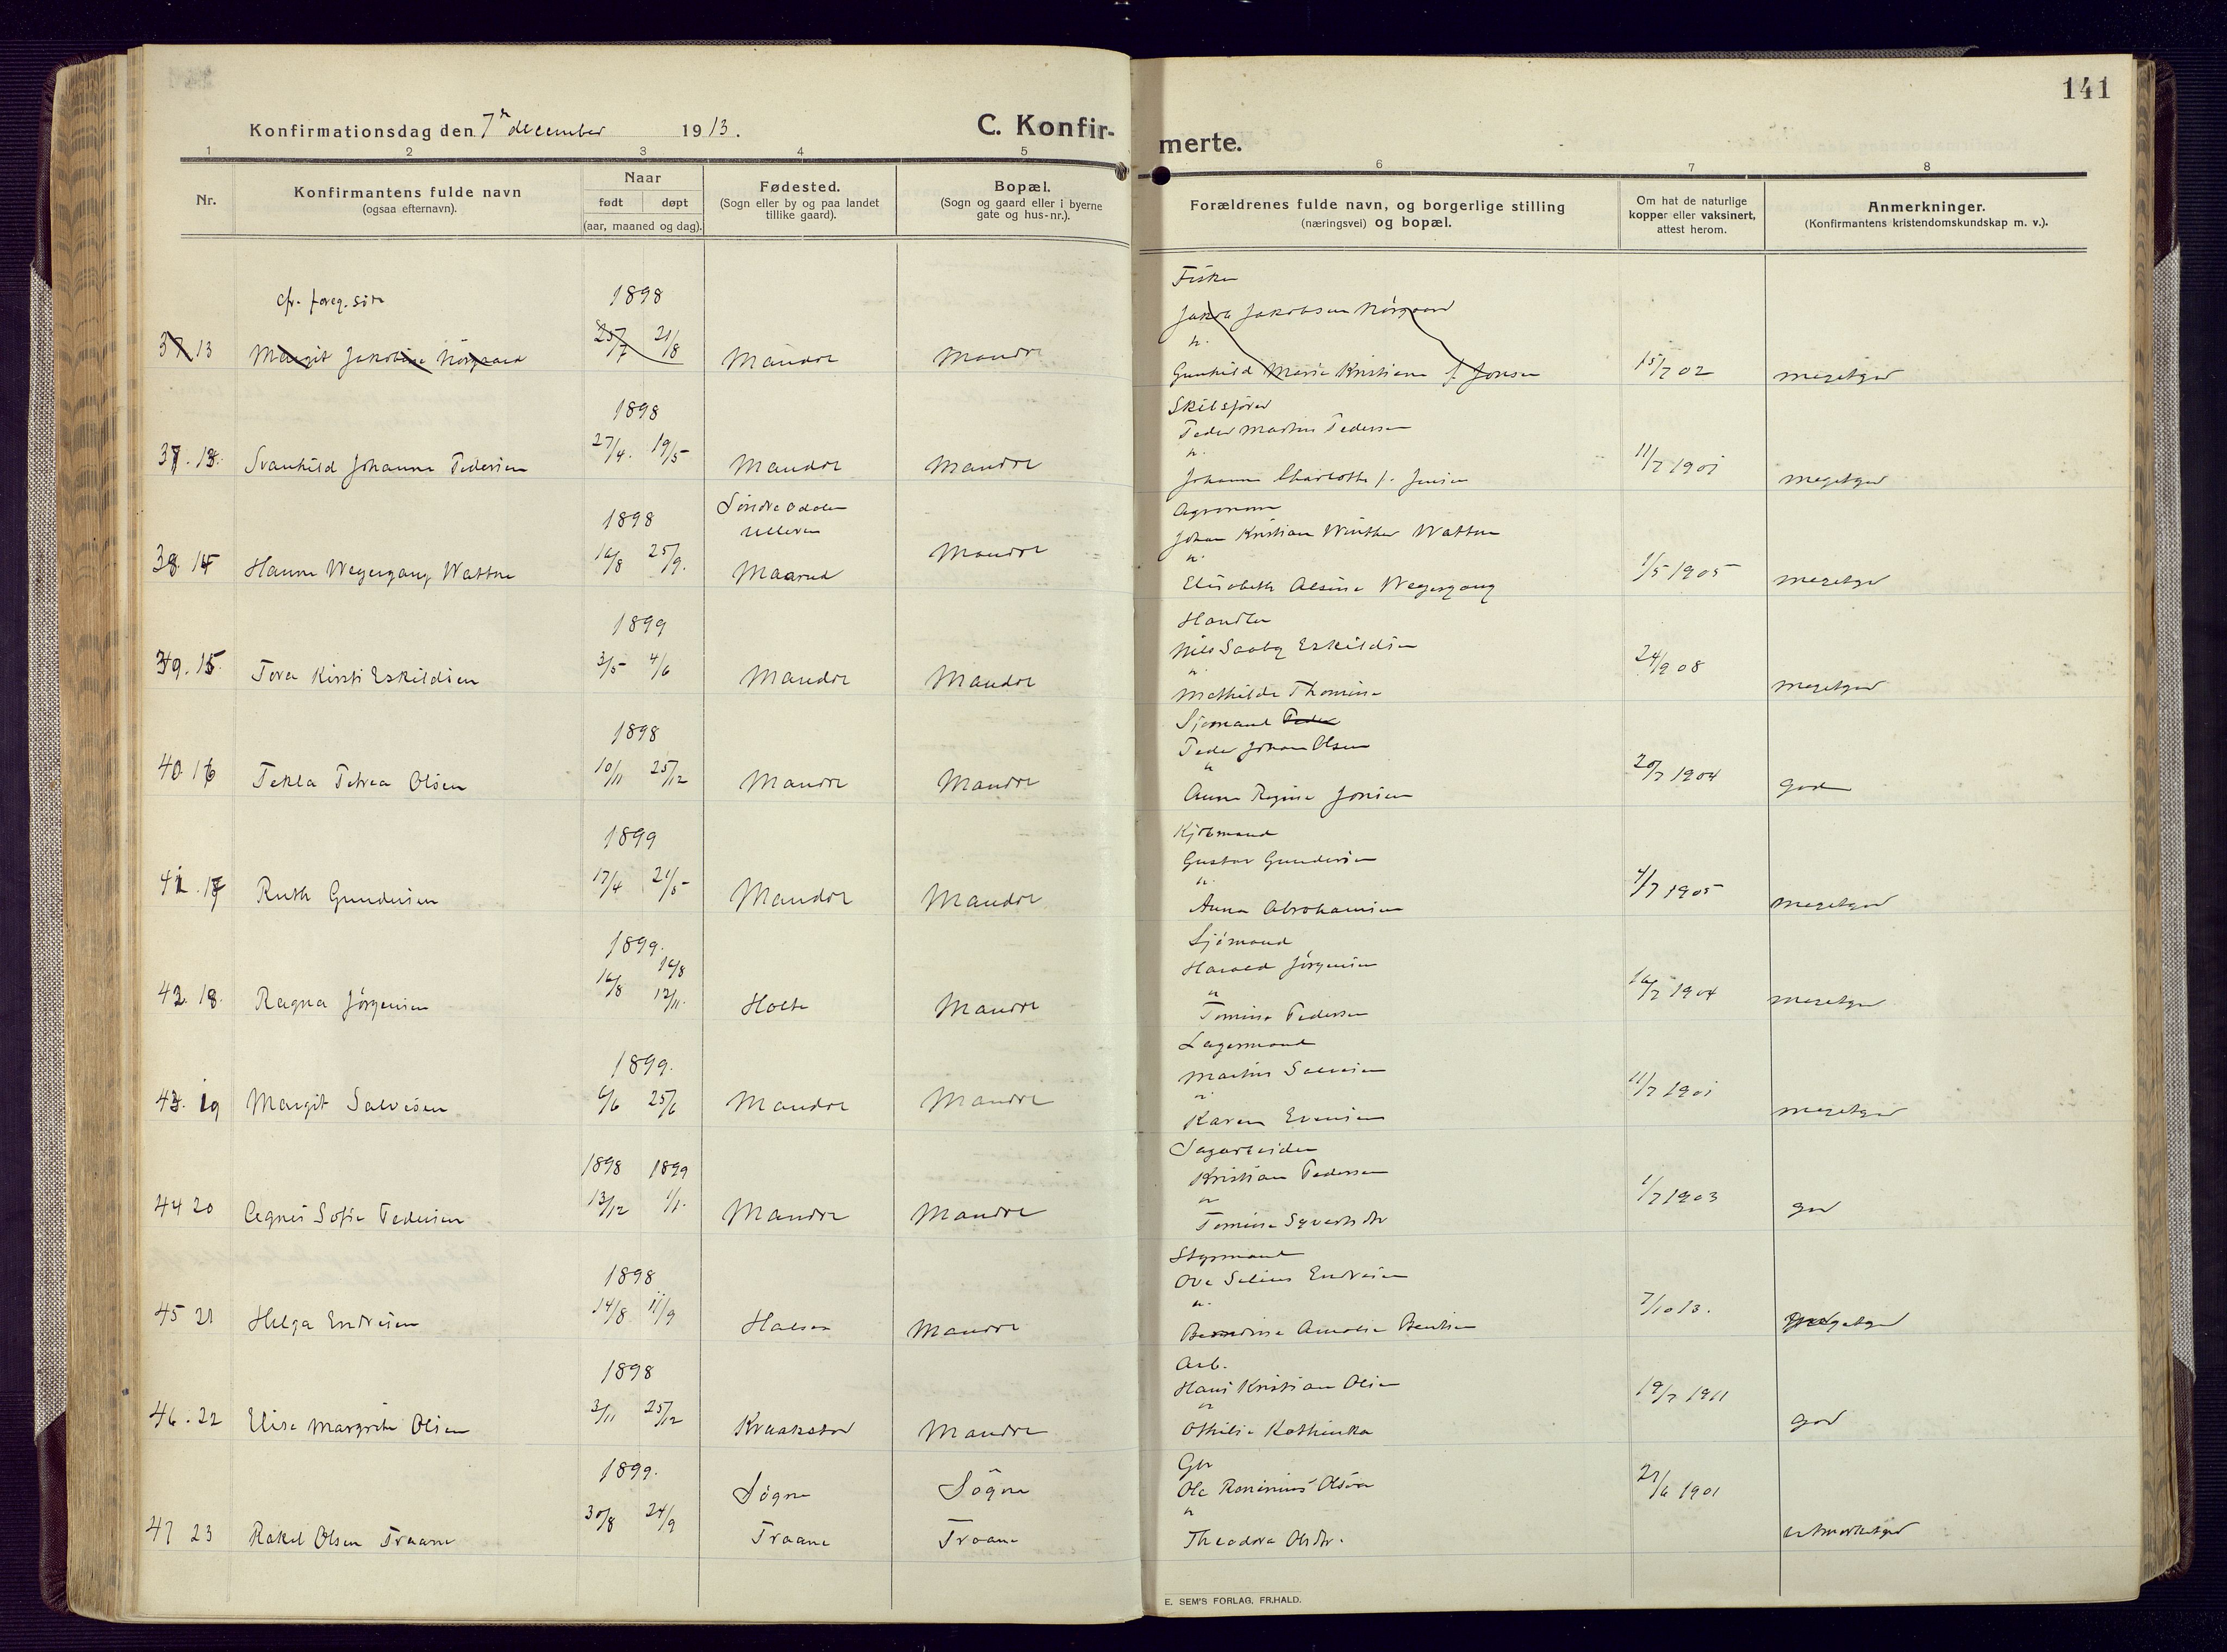 141
Konfirmationsdag den 7de december 1913.
C. Konfir-
merte.
1 2 3 4 5 6 7 8
Nr.
Konfirmantens fulde navn
(ogsaa efternavn).
Naar
født døpt
(aar, maaned og dag).
Fødested.
(Sogn eller by og paa landet
tillike gaard).
Bopæl.
(Sogn og gaard eller i byerne
gate og hus-nr.).
Forældrenes fulde navn, og borgerlige stilling
(næringsvei) og bopæl.
Om hat de naturlige
kopper eller vaksinert,
attest herom.
Anmerkninger.
(Konfirmantens kristendomskundskap m. v.).
cfr. foreg. side
1898
37 13 Margit Jakobine Nörgaard 25/7 21/8 Mandre Mandre
Fisker
Jakob Jakobsen Nörgaard
u.
Gunhild Marie Kristiane f. Jonsen
15/7 02 megetgod
1898
37. 13. Svanhild Johanne Pedersen 27/4. 19/5 Mandre Mandre
Peder Martin Pedersen
u.
Johanne Charlotte f. Jensen
11/7 1901 megetgod
1898
38. 14 Hanne Weyergang Wattne 16/8 25/9.
Søndre Odalen
Ulleren
Maarud
Mandre
Agronom
Johan Kristian Winther Wattne
u.
Elisabeth Alsine Weyergang
1/5 1905 megetgod
1899
39. 15. Tora Kirsti Eskildsen 3/5 4/6 Mandre Mandre
Handler
Nils Saaby Eskildsen
u.
Mathilde Thomine
24/9 08 megetgod
1898
40. 16 Tekla Petrea Olsen 10/11 25/12 Mandre Mandre
Sjømand Peder
Peder Johan Olsen
u
Anne Regine Jonsen
20/7 1904 god
1899
41. 17 Ruth Gundersen 17/4 21/5 Mandre Mandre
Kjøbmand
Gustav Gundersen
u.
Anna Abrahamsen
4/7 1905 megetgod
1899.
42. 18. Ragna Jörgensen 16/8 16/8 12/11. Holte Mandre
Sjömand
Harald Jörgensen
u
Tomine Pedersen
16/7 1904 megetgod
1899.
43. 19 Margit Salvesen 6/6 25/6 Mandre Mandre
Lagermand
Martin Salvesen
u.
Karen Evensen
11/7 1901 megetgod
1898 1899
44 20 Agnes Sofie Pedersen 13/12 1/1. Mandre Mandre
Sagarbeider
Kristian Pedersen
u
Tomine Syvertsdtr
1/7 1903 god
1898
45 21 Helga Endresen 14/8 11/9 Halsen Mandre
Styrmand
Ove Selius Endresen
u.
Berndine Amalie Bentsen
7/10 13. megetgod
1898
46. 22 Elise Margrethe Olsen 3/11 25/12 Mandre
Arb.
Hans Kristian Olsen
u
Othilie Kathinka
19/7 1911 god
1899.
47 23 Rakel Olsen Traane 30/8 24/9
Søgne
Traane
Søgne
Traane
Gbr
Ole Olsen
u
Theodora Olsdtr.
1901 utmerketgod
E. SEM'S FORLAG, FR.HALD.